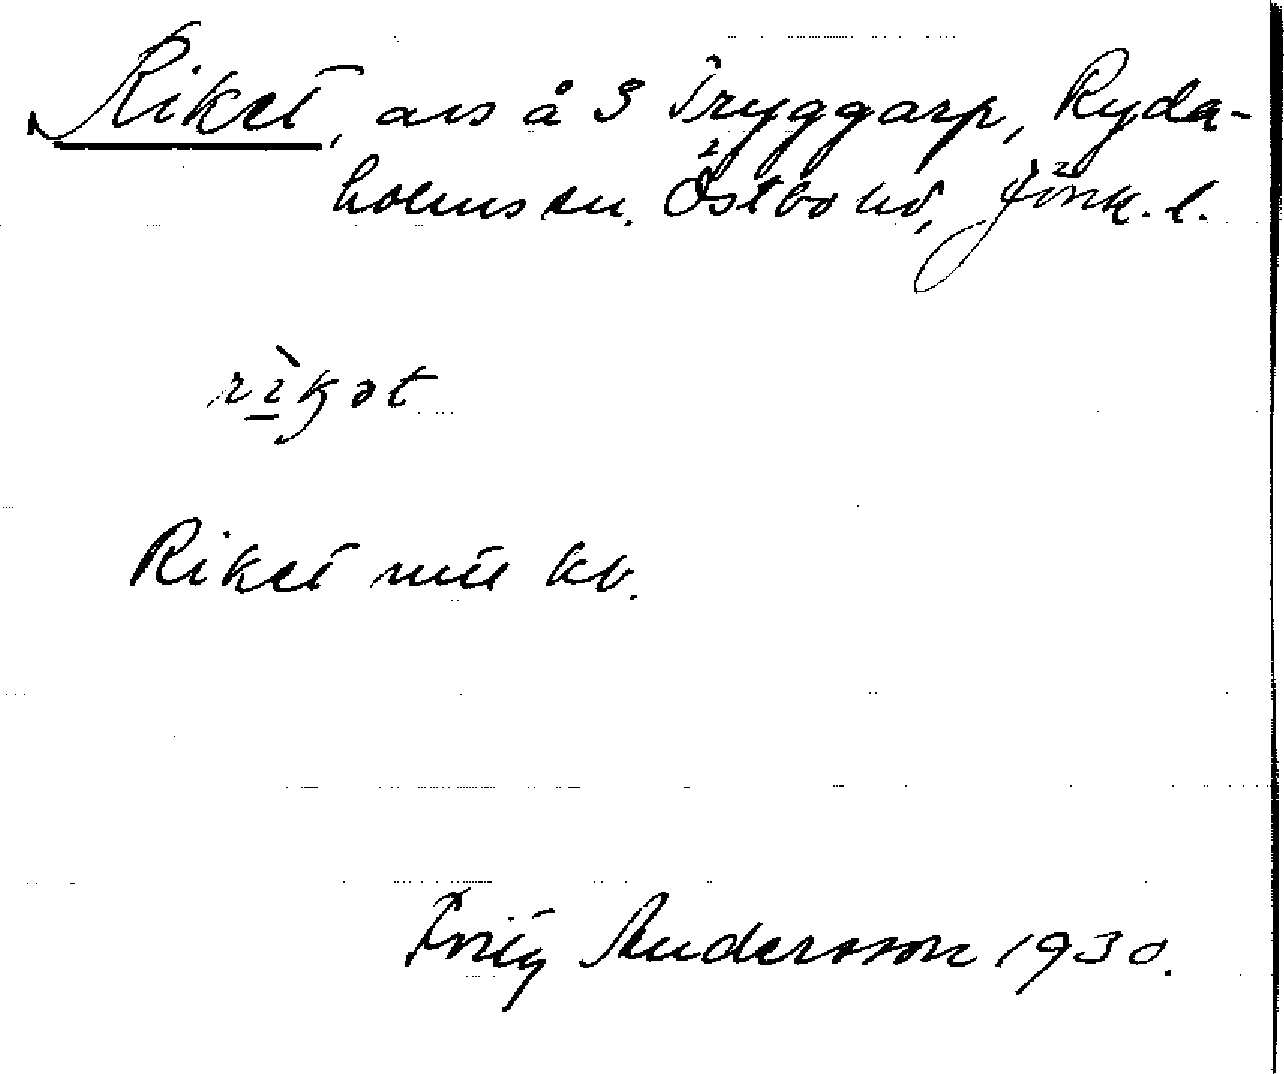 Riket, avs å S Tryggarp, Ryda-
holms sn, Östbo hd, Jönk. l.
rìkət
Riket enl kb.
Fritz Andersson 1930.